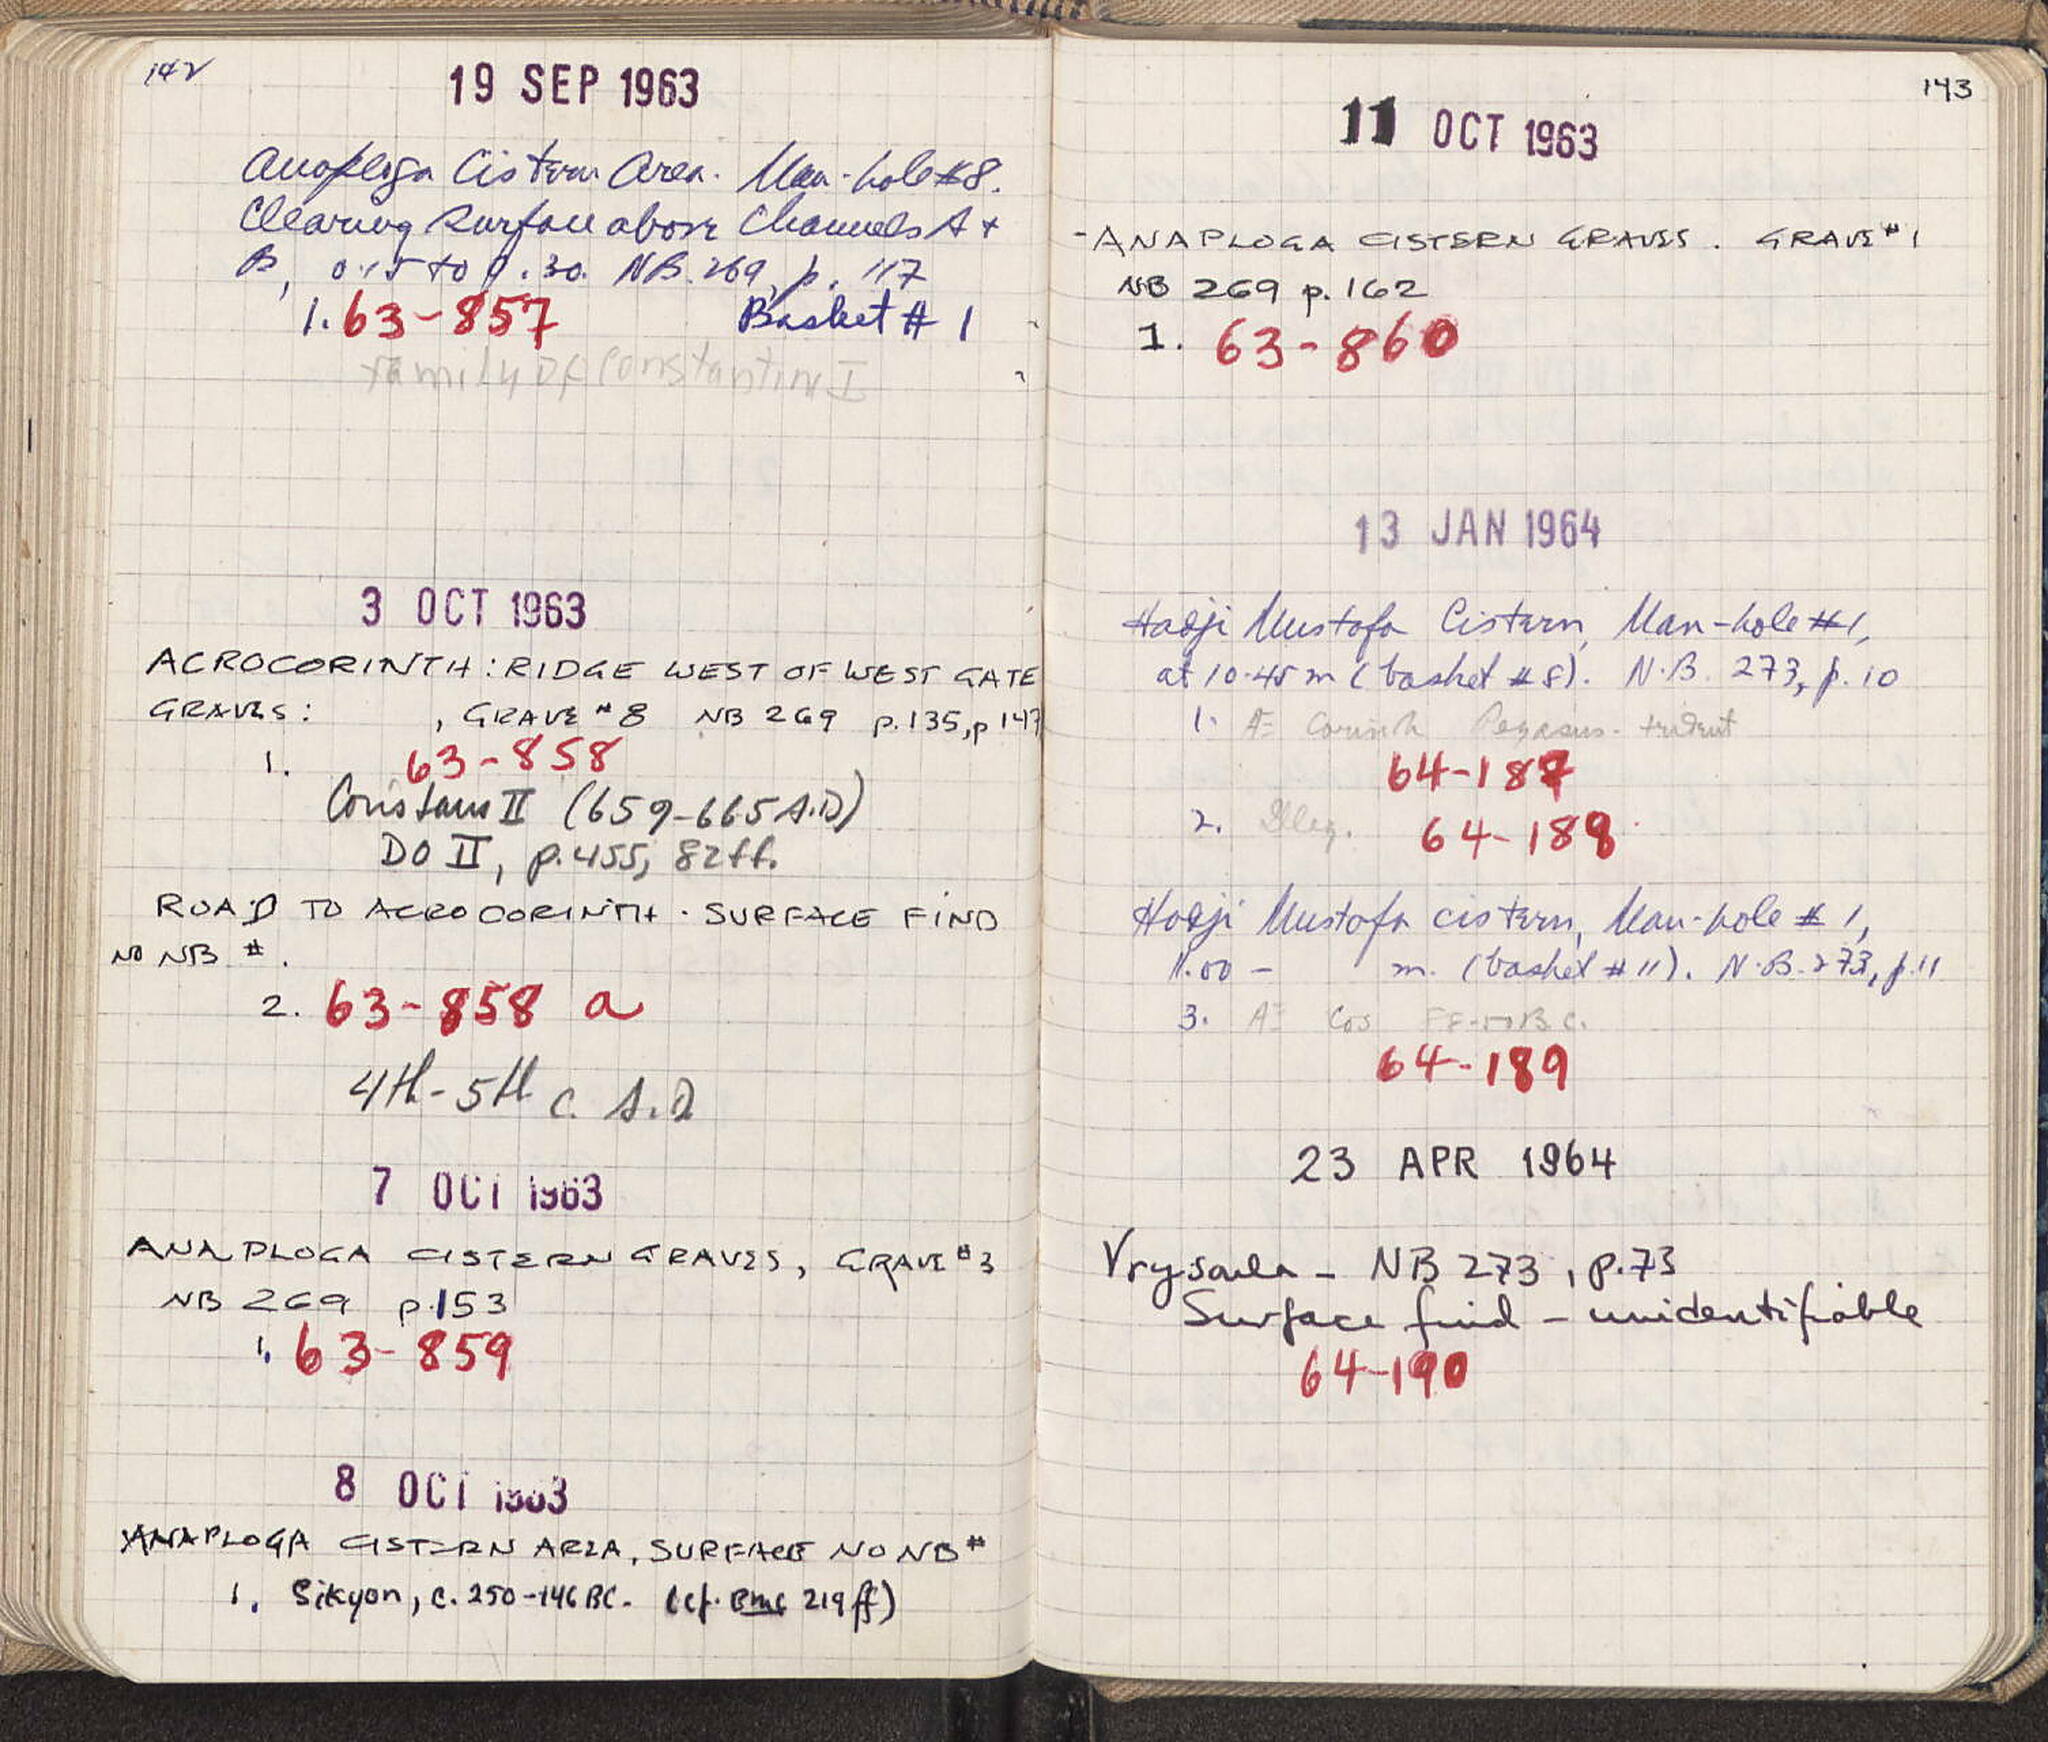 142
19 SEP 1963
Anaploga Cistern Area. Man-hole #8.
Clearing surface above Channels A +
B, 0.15 to 0.30. NB. 269, p. 117
1. 63-857 Basket # 1
Family of Constantine I
3 OCT 1963
ACROCORINTH: RIDGE WEST OF WEST GATE
GRAVES: , GRAVE #8 NB 269 p. 135, p 147
1. 63-858
Constans II (659-665 A.D)
DO II, p. 455, 82ff.
ROAD TO ACROCORINTH. SURFACE FIND
NO NB #.
2. 63-858 a
4th-5th c. A.D
7 OCT 1963
ANAPLOGA CISTERN GRAVES, GRAVE #3
NB 269 p. 153
1. 63-859
8 OCT 1963
ANAPLOGA CISTERN AREA, SURFACE NO NB #
1. Sikyon, c. 250-146 BC. (cf. BMC 219 ff)
143
11 OCT 1963
-ANAPLOGA CISTERN GRAVES. GRAVE #1
NB 269 p. 162
1. 63-860
13 JAN 1964
Hadji Mustafa Cistern, Man-hole #1,
at 10.45 m (basket #8). N.B. 273, p. 10
1. Æ Corinth Pegasus - trident
64-187
2. Illeg. 64-188
Hadji Mustafa cistern, Man-hole # 1,
11.00 - m. (basket # 11). N.B. 273, p. 11
3. Æ Cos B.C.
64-189
23 APR 1964
Vrysoula - NB 273, p. 73
Surface find - unidentifiable
64-190